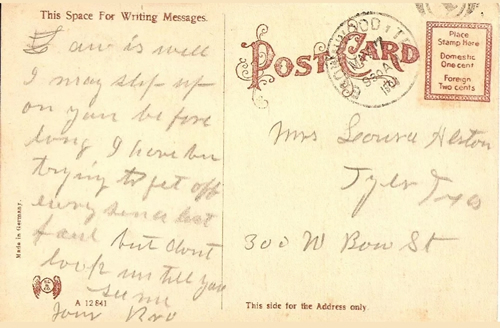 This Space For Writing Messages.
I am is well
I may slip up
on you before
long I have ben
trying to get off
every sence last
but dont
look un till you
see me
Your Bro
Made in Germany.
A 12841
POST CARD
Place
Stamp Here
Domestic
One cent
Foreign
Two cents
Mrs
Tyler Texas
300 W Bow St
This side for the Address only.